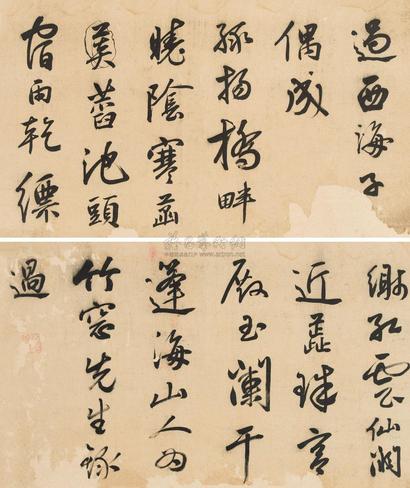 過西海子
偶成
綠楊橋畔
曉陰寒菡
萏池頭
宿雨乾縹
緲紅雲仙闕
近蕋珠宮
殿玉闌干
蓬海山人為
竹窓先生錄
過